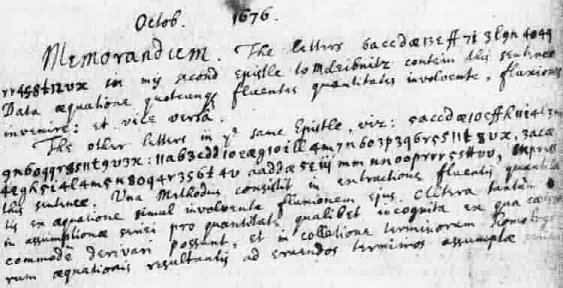 Octob. 1676.
Memorandum. The letters 6accdæ13eff7i3l9n4o4q
rr4s8t12vx in my second epistle to M. Leibnitz contein this sentence
Data æquatione quotcunq fluentes quantitates involvente, fluxiones
invenire: et vice versâ.
The other letters in yᵉ same Epistle, viz: 5accdæ10effh
9n6oqqr8s11t9v3x: 11ab3cdd10eæg10ill4m7n6o3p3q6r5s11t8vx, 3acæ
4egh5i4l4m5n8oq4r3s6t4v aaddæ5eiijmmnnooprrr5sttvv, express
this sentence. Una Methodus consistit in extractione fluentis quantita
tis ex æquatione simul involvente fluxionem ejus. Altera tantùm
in assumptione seriei pro quantitate qualibet incognita ex qua cætera
commodè derivari possunt, et in collatione terminorum homolog
rum æquationis resultantis ad eruendos terminos assumptæ seriei